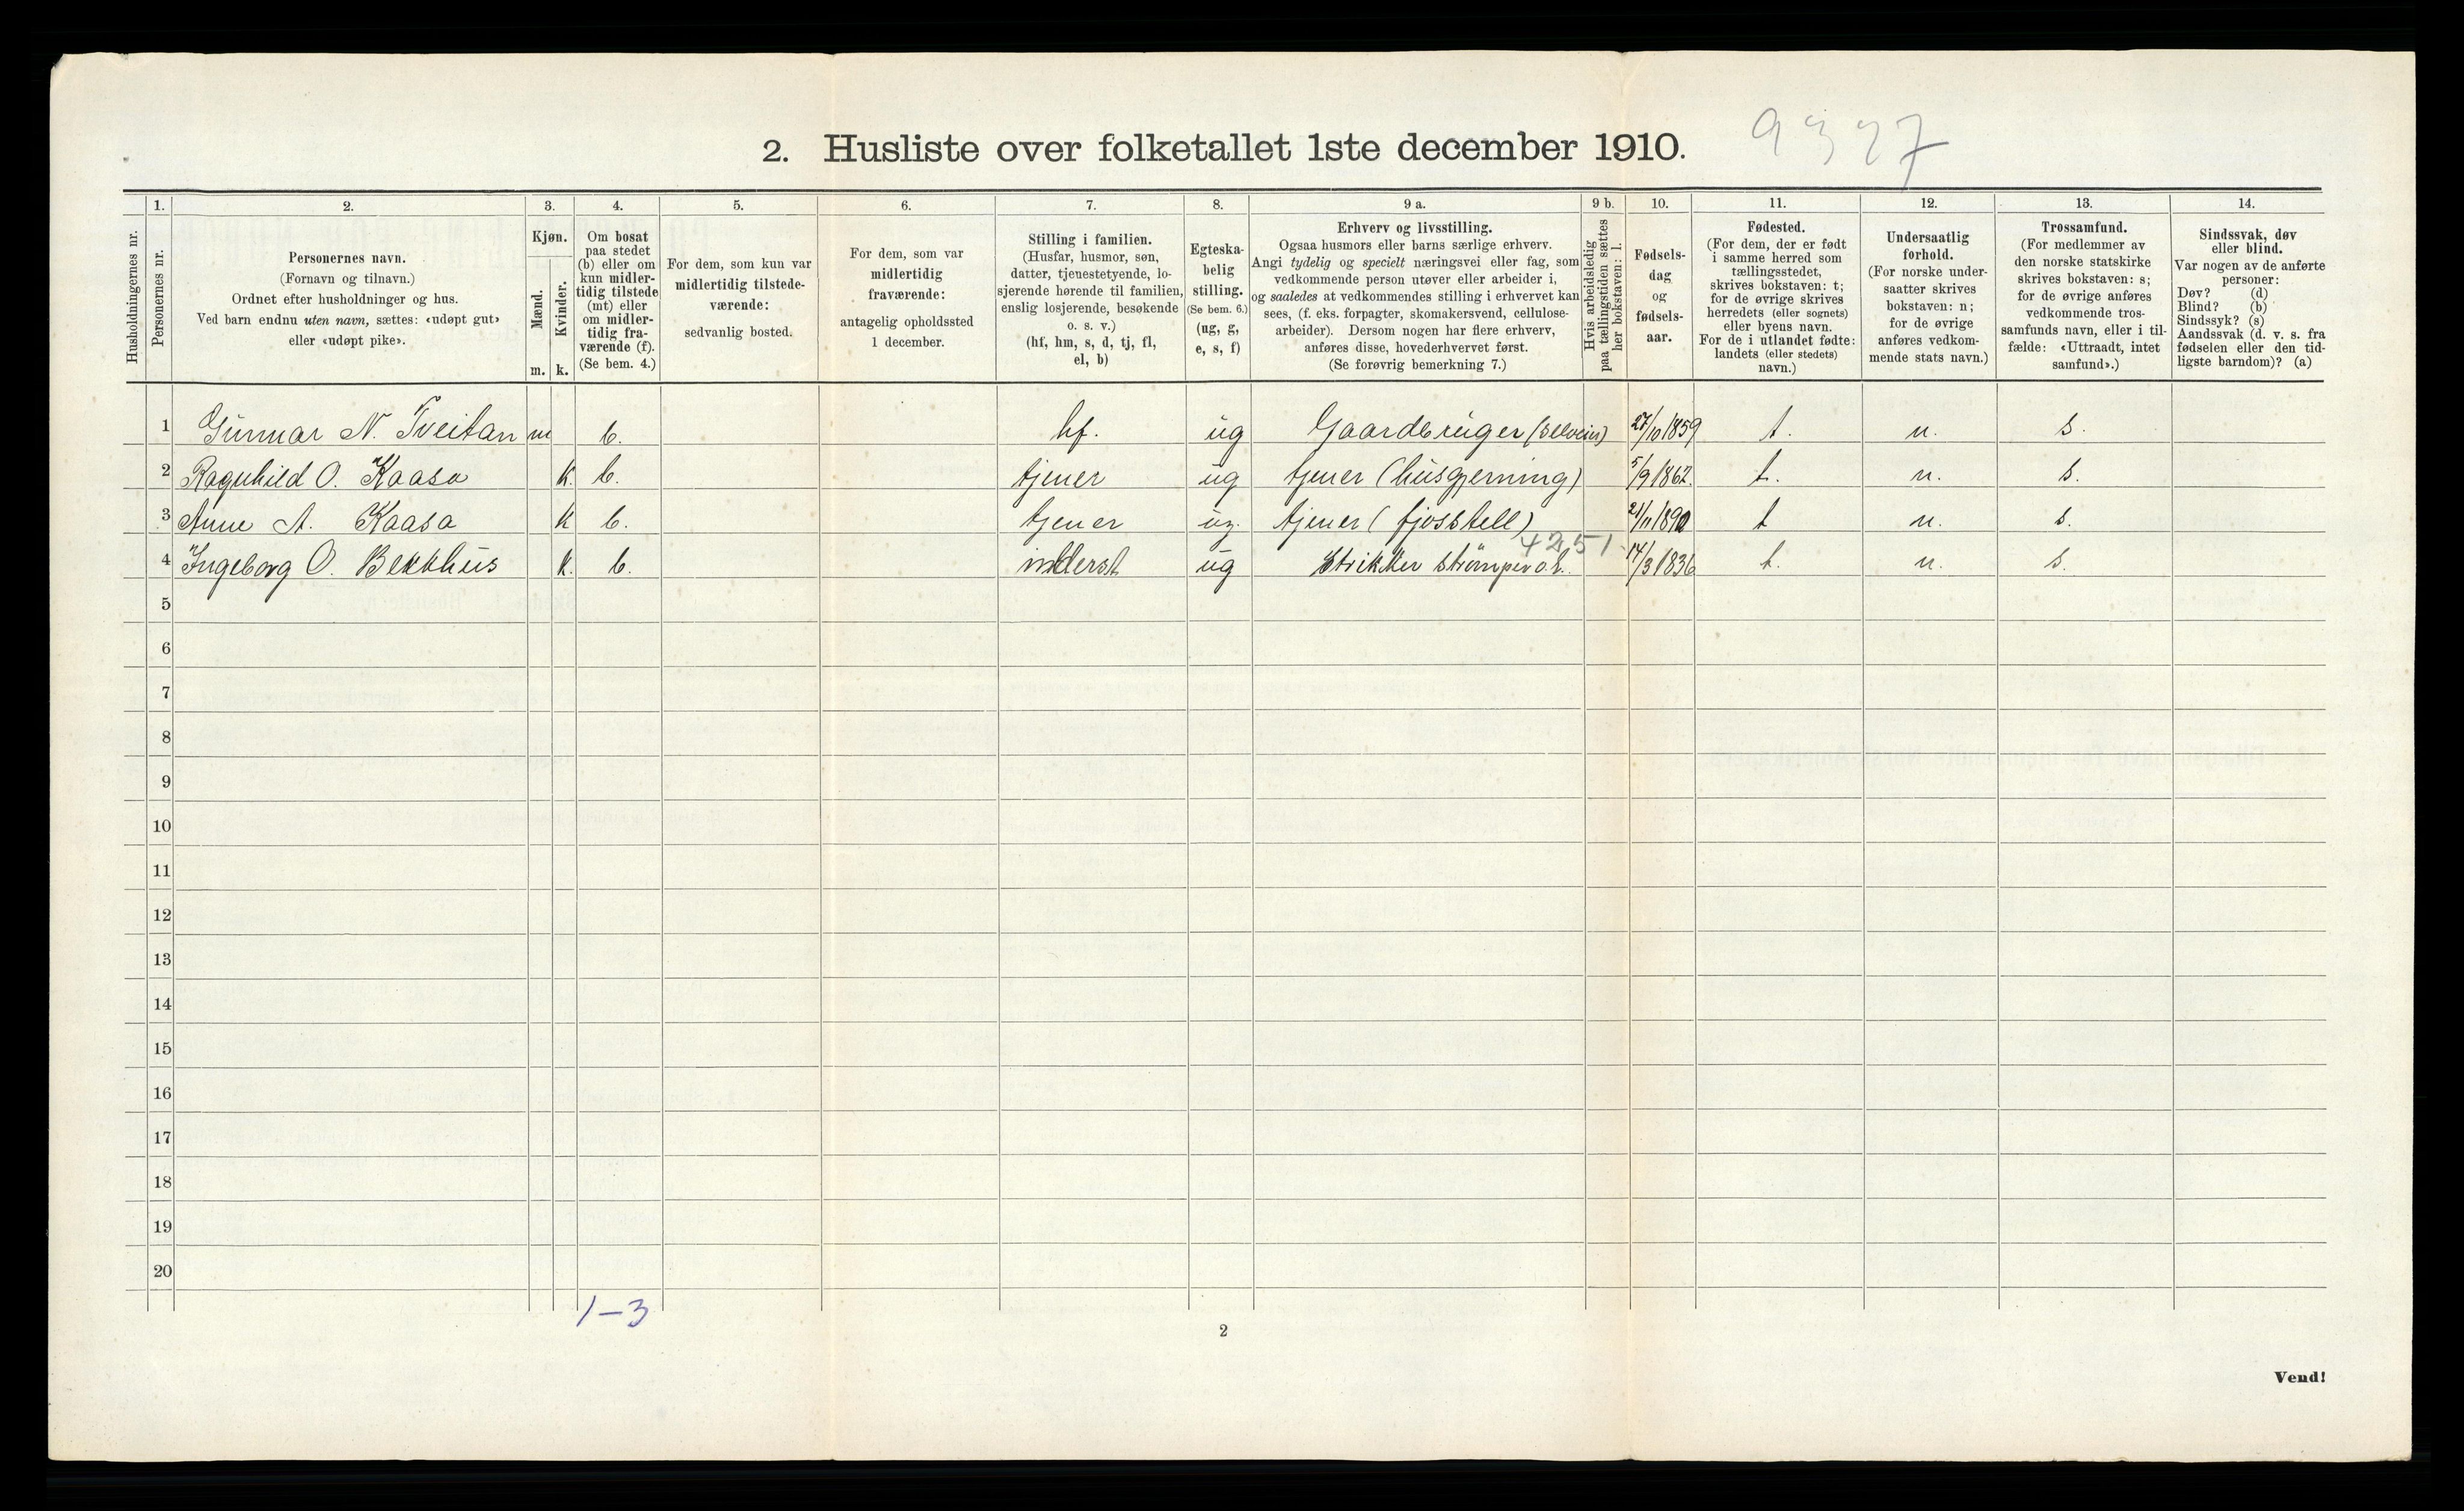 2. Husliste over folketallet 1ste december 1910. 9327
Husholdningernes nr.
1. Personernes nr.
2. Personernes navn.
(Fornavn og tilnavn.)
Ordnet efter husholdninger og hus.
Ved barn endnu uten navn, sættes: «udøpt gut»
eller «udøpt pike».
3. Kjøn.
Mænd. m.
Kvinder. k.
4. Om bosat
paa stedet
(b) eller om
kun midler-
tidig tilstede
(mt) eller
om midler-
tidig fra-
værende (f).
(Se bem. 4.)
5. For dem, som kun var
midlertidig tilstede-
værende:
sedvanlig bosted.
6. For dem, som var
midlertidig
fraværende:
antagelig opholdssted
1 december.
7. Stilling i familien.
(Husfar, husmor, søn,
datter, tjenestetyende, lo-
sjerende hørende til familien,
enslig losjerende, besøkende
o. s. v.)
(hf, hm, s, d, tj, fl,
el, b)
8. Egteska-
belig
stilling.
(Se bem. 6.)
(ug, g,
e, s, f)
9 a. Erhverv og livsstilling.
Ogsaa husmors eller barns særlige erhverv.
Angi tydelig og specielt næringsvei eller fag, som
vedkommende person utøver eller arbeider i,
og saaledes at vedkommendes stilling i erhvervet kan
sees, (f. eks. forpagter, skomakersvend, cellulose-
arbeider). Dersom nogen har flere erhverv,
anføres disse, hovederhvervet først.
(Se forøvrig bemerkning 7.)
9 b. Hvis arbeidsledig
paa tællingstiden sættes
her bokstaven: l.
10. Fødsels-
dag
og
fødsels-
aar.
11. Fødested.
(For dem, der er født
i samme herred som
tællingsstedet,
skrives bokstaven: t;
for de øvrige skrives
herredets (eller sognets)
eller byens navn.
For de i utlandet fødte:
landets (eller stedets)
navn.)
12. Undersaatlig
forhold.
(For norske under-
saatter skrives
bokstaven: n;
for de øvrige
anføres vedkom-
mende stats navn.)
13. Trossamfund.
(For medlemmer av
den norske statskirke
skrives bokstaven: s;
for de øvrige anføres
vedkommende tros-
samfunds navn, eller i til-
fælde: «Uttraadt, intet
samfund».)
14. Sindssvak, døv
eller blind.
Var nogen av de anførte
personer:
Døv? (d)
Blind? (b)
Sindssyk? (s)
Aandssvak (d. v. s. fra
fødselen eller den tid-
ligste barndom)? (a)
1 Gunnar N. Tveitan m b. hf. ug Gaardbruger (selveier) 27/10 1859 t. n. s.
2 Ragnhild O. Kaasa k. b. tjener ug tjener (husgjerning) 5/9 1862. t. n. s.
3 Anne A. Kaasa k b. tjener ug. tjener (fjosstell) 21/11 1890 t n. s.
4251
4 Ingeborg O. Bekkhus k. b. inderst ug Strikker strømper o.l. 14/3 1836 t. n. s.
5
6
7
8
9
10
11
12
13
14
15
16
17
18
19
20
1-3
2
Vend!